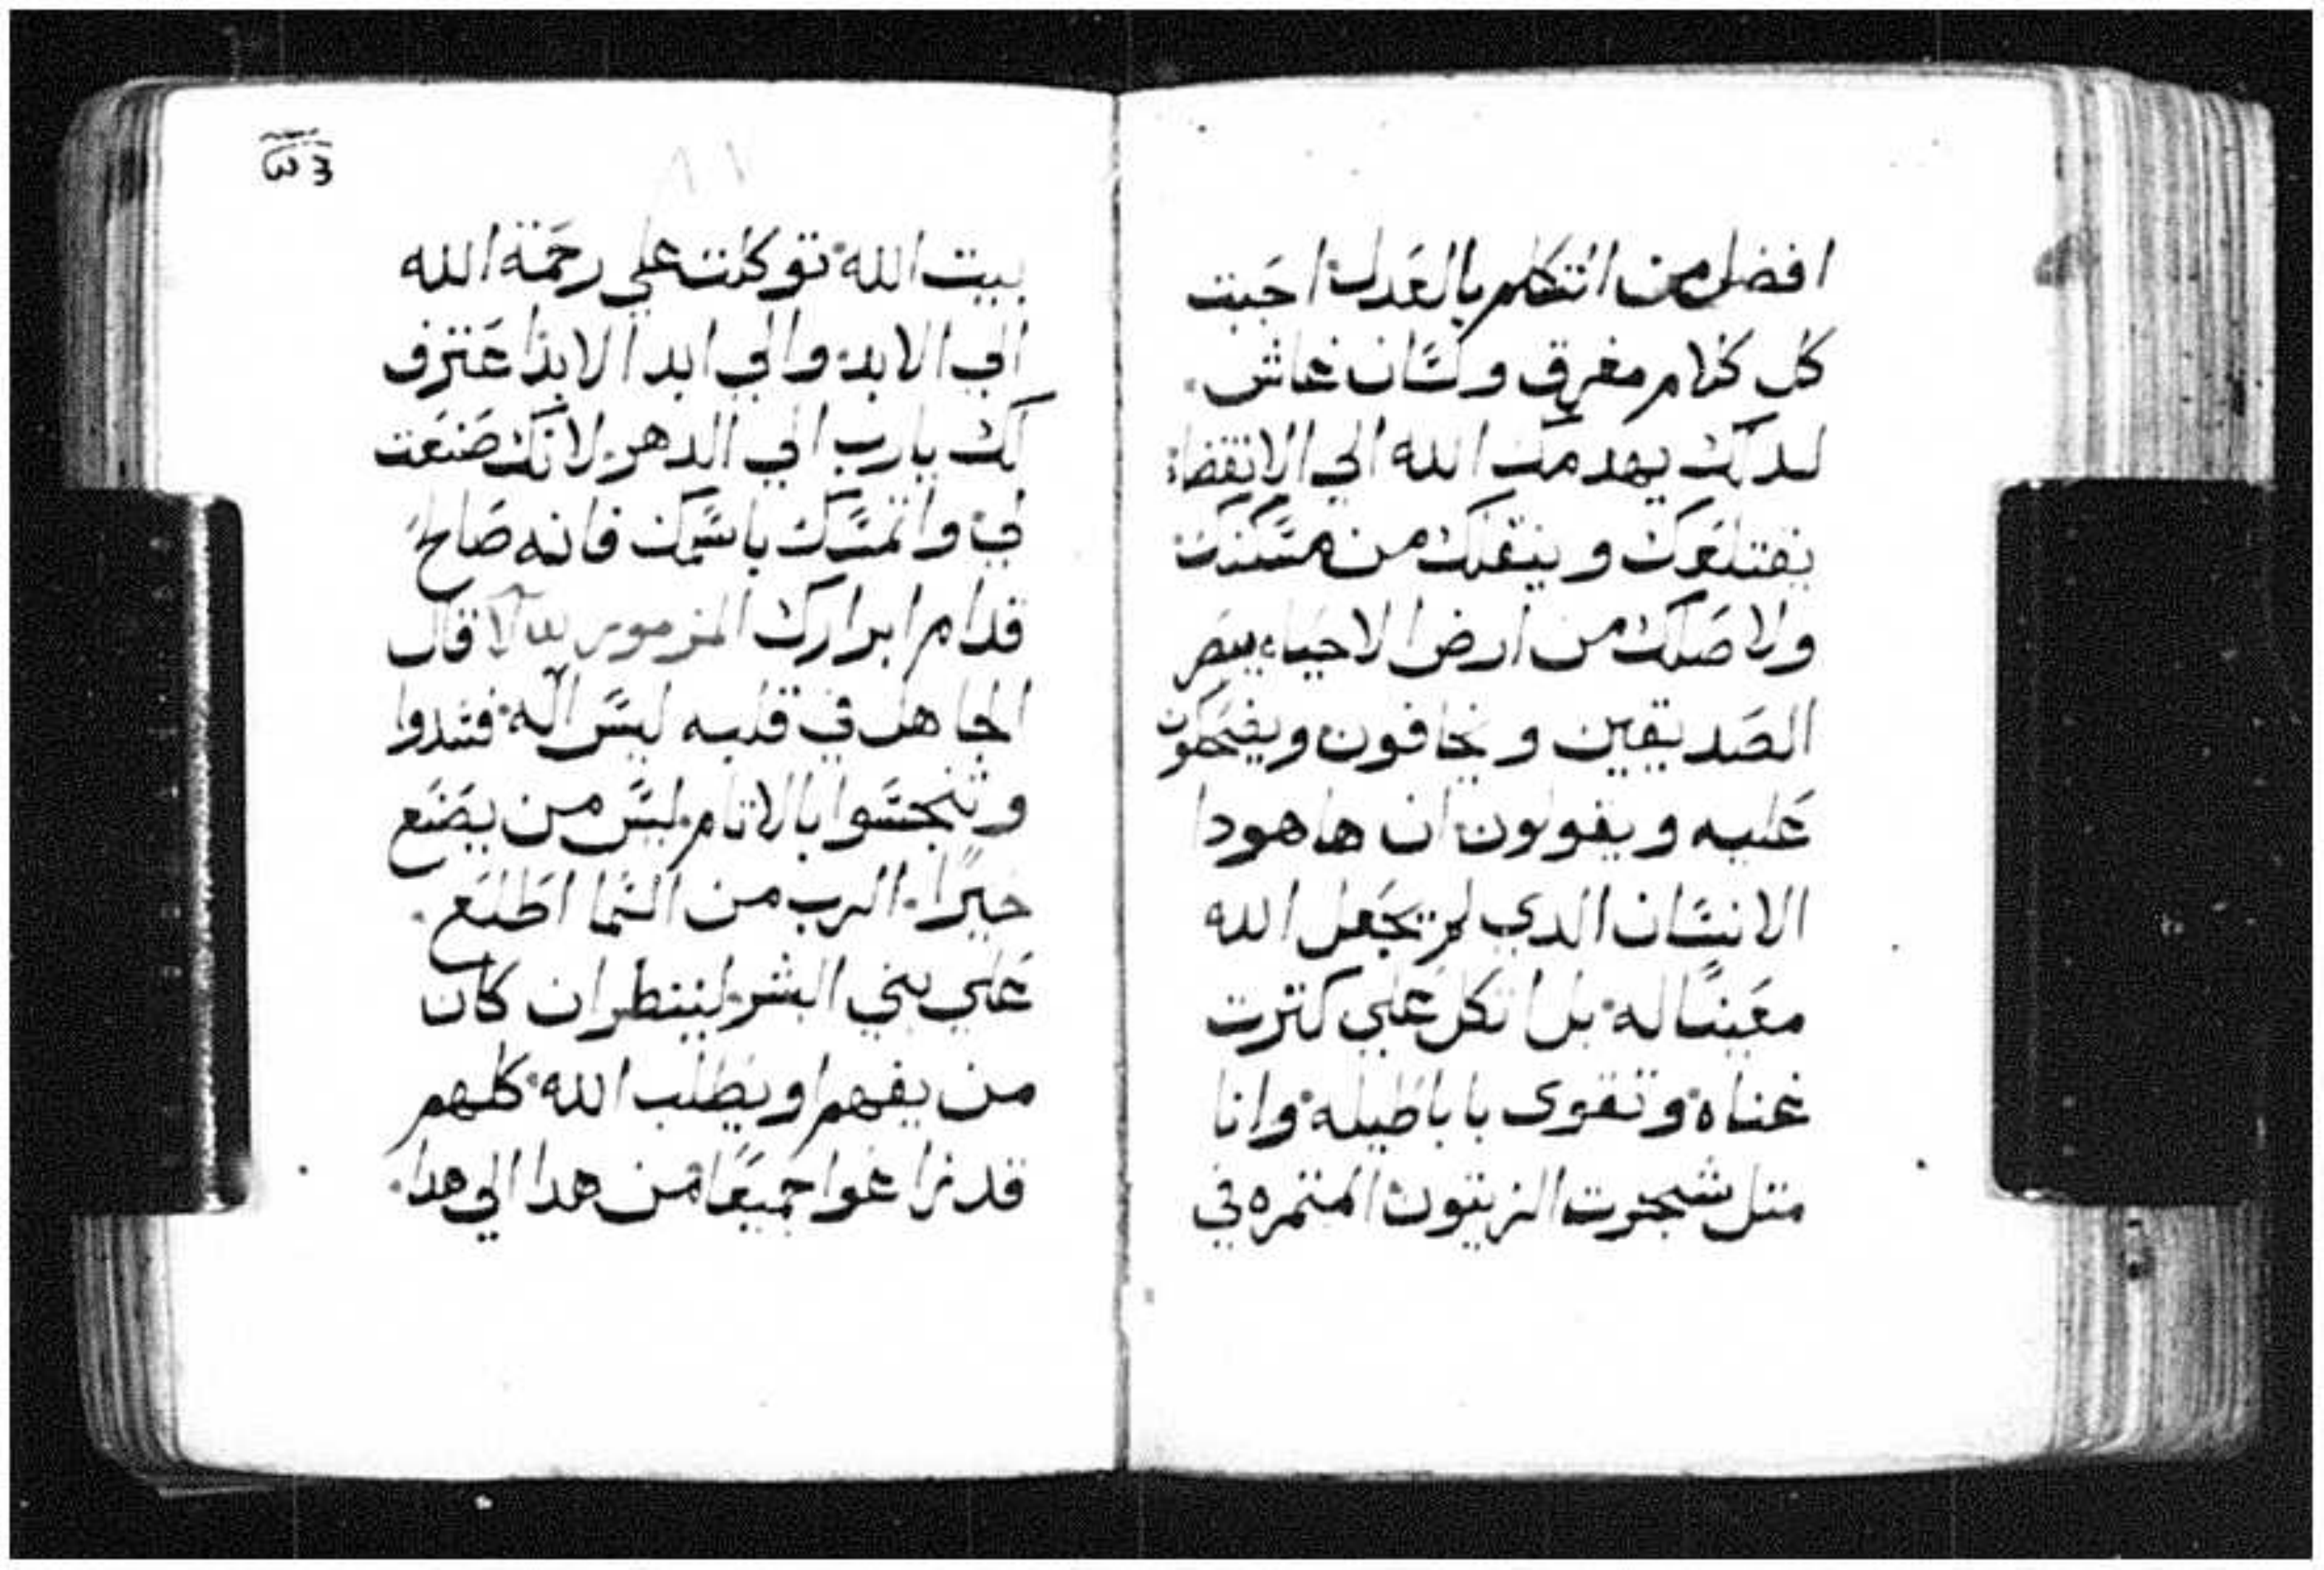 افضل من اتتكلم بالعدل احببت
كل كلام مغرق ولسان غاش
لدلك يهدمك الله الي الانقضاء
يقتلعك وينقلك من مسكنك
والاصلك من ارض الاحياء يبصر
الصديقين ويخافون ويضحكون
عليه ويقولون ان هاهودا
الانسان الدي لم يجعل الله
معينا له بل اتكل علي كترت
غناه وتقوى باباطيله وانا
متل شجرت الزيتون المتمره في
بيت الله توكلت علي رحمة الله
الي الابد والي ابد الابد اعترف
لك يارب الي الدهر لانك صنعت
لي واتمسك باسمك فانه صالح
قدام ابرارك المزمور قال
الجاهل في قلبه ليس اله فسدوا
وتنجسوا بالاتام ليس من يصنع
خيرًا الرب من السما اطلع
علي بني البشر لينظر ان كان
من يفهم او يطلب الله كلهم
قد زاغوا جميعًا من هدا الي هدا